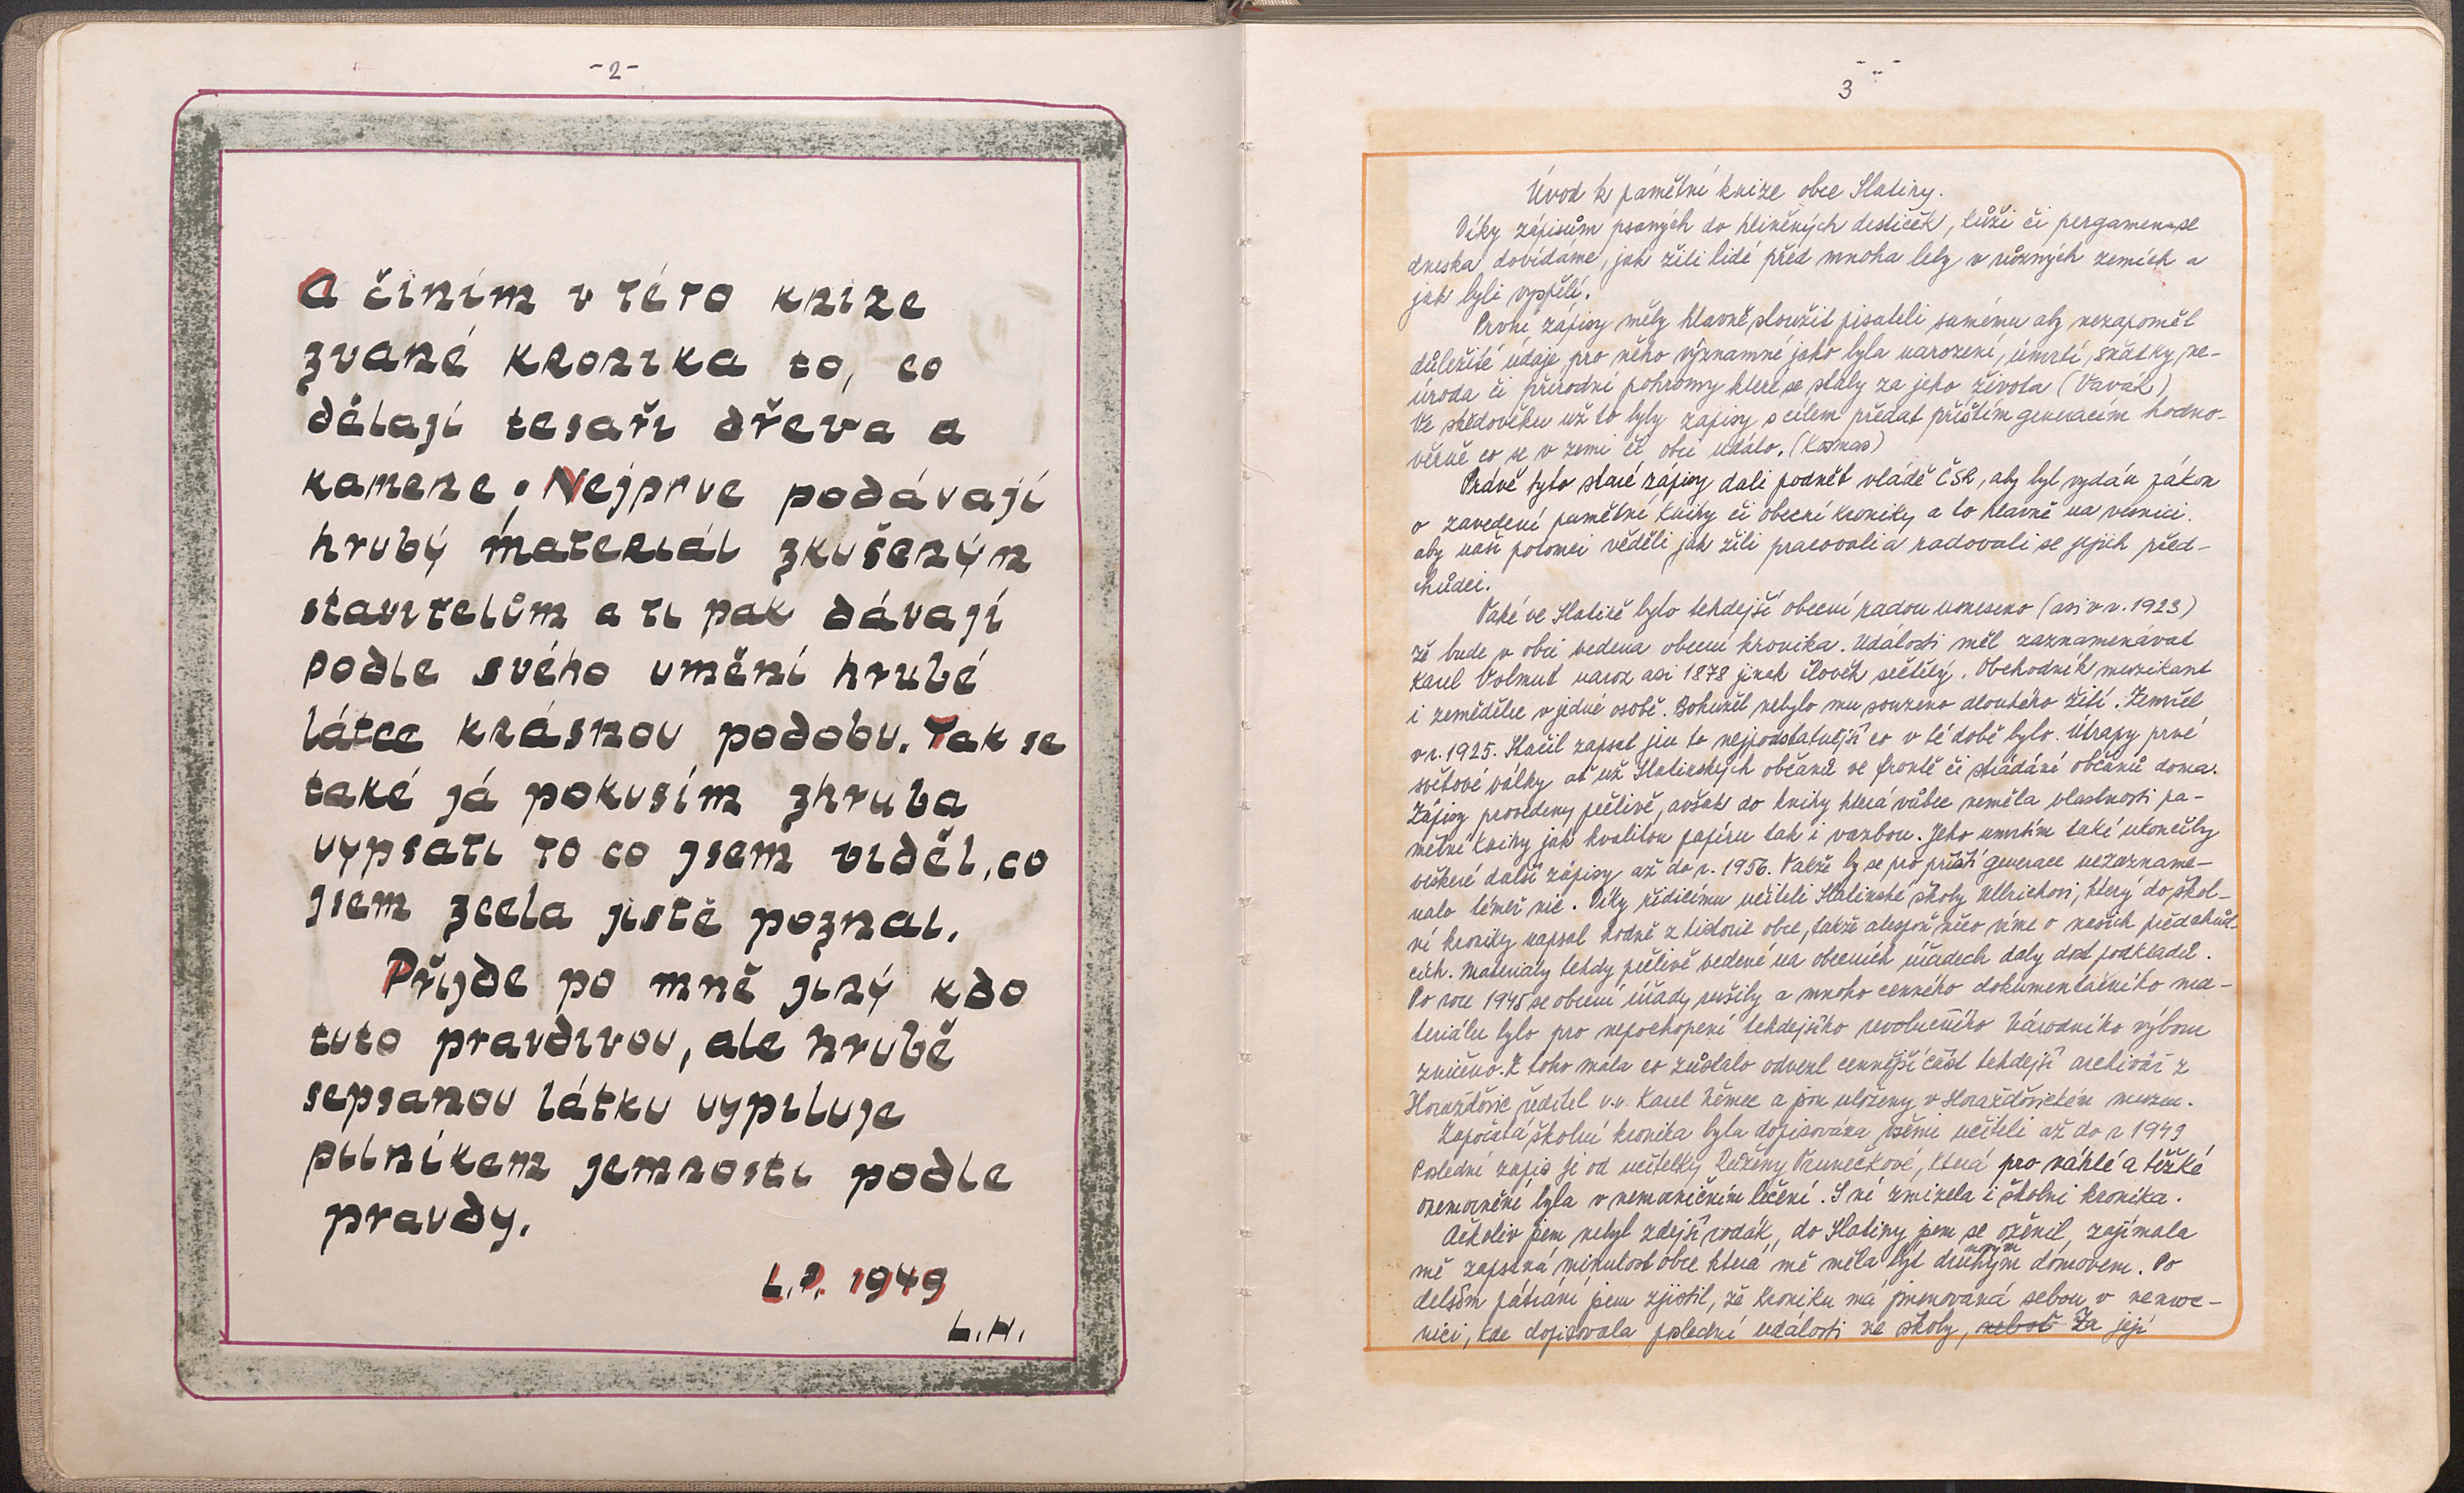 -2-
A činím v této knize
zvané kronika to, co
dělají tesaři dřeva a
kamene. Nejprve podávají
hrubý materiál zkušeným
stavitelům a ti pak dávají
podle svého umění hrubé
látce krásnou podobu. Tak se
také já pokusím zhruba
vypsati to co jsem viděl, co
jsem zcela jistě poznal.
Přijde po mně jiný kdo
tuto pravdivou, ale hrubě
sepsanou látku vypiluje
pilníkem jemnosti podle
pravdy.
L.P. 1949
L.H.
3
Úvod k pamětní knize obce Slatiny.
Díky zápisům psaných do hliněných destiček, kůži či pergamenu se
dneska dovídáme, jak žili lidé před mnoha lety v různých zemích a
jak byli vyspělí.
První zápisy měly hlavně sloužit pisateli samému aby nezapoměl
důležité údaje pro něho významné jako byla narození, úmrtí, sňatky, ne-
úroda či přírodní pohromy které se staly za jeho života (Vavák)
Ve středověku už to byly zápisy s cílem předat příštím generacím hodno-
věrně co se v zemi či obci událo. (Kosmas)
Právě tyto staré zápisy dali podnět vládě ČSR, aby byl vydán zákon
o zavedení pamětní knihy či obecní kroniky a to hlavně na vesnici.
aby naši potomci věděli jak žili pracovali a radovali se jejich před-
chůdci.
Také ve Slatině bylo tehdejší obecní radou usneseno (asi v r. 1923)
že bude v obci vedena obecní kronika. Události měl zaznamenávat
Karel Volmut naroz asi 1878 jinak člověk sečtělý. Obchodník muzikant
i zemědělec v jedné osobě. Bohužel nebylo mu souzeno dlouhého žití. Zemřel
v r. 1925. Stačil zapsat jen to nejpodstatnější co v té době bylo. Útrapy prvé
světové války ať už Slatinských občanů ve frontě či strádání občanů doma.
Zápisy provedeny pečlivě, avšak do knihy která vůbec neměla vlastnosti pa-
mětní knihy jak kvalitou papíru tak i vazbou. Jeho umrtím také ukončily
veškeré další zápisy až do r. 1956. Takže by se pro příští generace nezazname-
nalo téměř nic. Díky řídicímu učiteli Slatinské školy Ullrichovi, který do škol-
ní kroniky napsal hodně z historie obce, takže alespoň něco víme o našich předchůd-
cích. Materiály tehdy pečlivě vedené na obecních úřadech daly dost podkladů.
Po roce 1945 se obecní úřady rušily a mnoho cenného dokumentačního ma-
teriálu bylo pro nepochopení tehdejšího revolučního Národního výboru
zničeno. Z toho mála co zůstalo odvezl cennější část tehdejší archivář z
Horažďovic ředitel v.v. Karel Němec a jsou uloženy v Horažďovickém muzeu.
Započatá školní kronika byla dopisována všemi učiteli až do r 1949
Poslední zápis je od učitelky Růženy Vaunečkové, která pro náhlé a těžké
onemocnění byla v nemocničním léčení. S ní zmizela i školní kronika.
Ačkoliv jsem nebyl zdejší rodák, do Slatiny jsem se oženil, zajímala
mě zapsaná minulost obce která mě měla být druhým domovem. Po
delším pátrání jsem zjistil, že kroniku má jmenovaná sebou v nemoc-
nici, kde dopisovala poslední události ze školy, neboť Za její